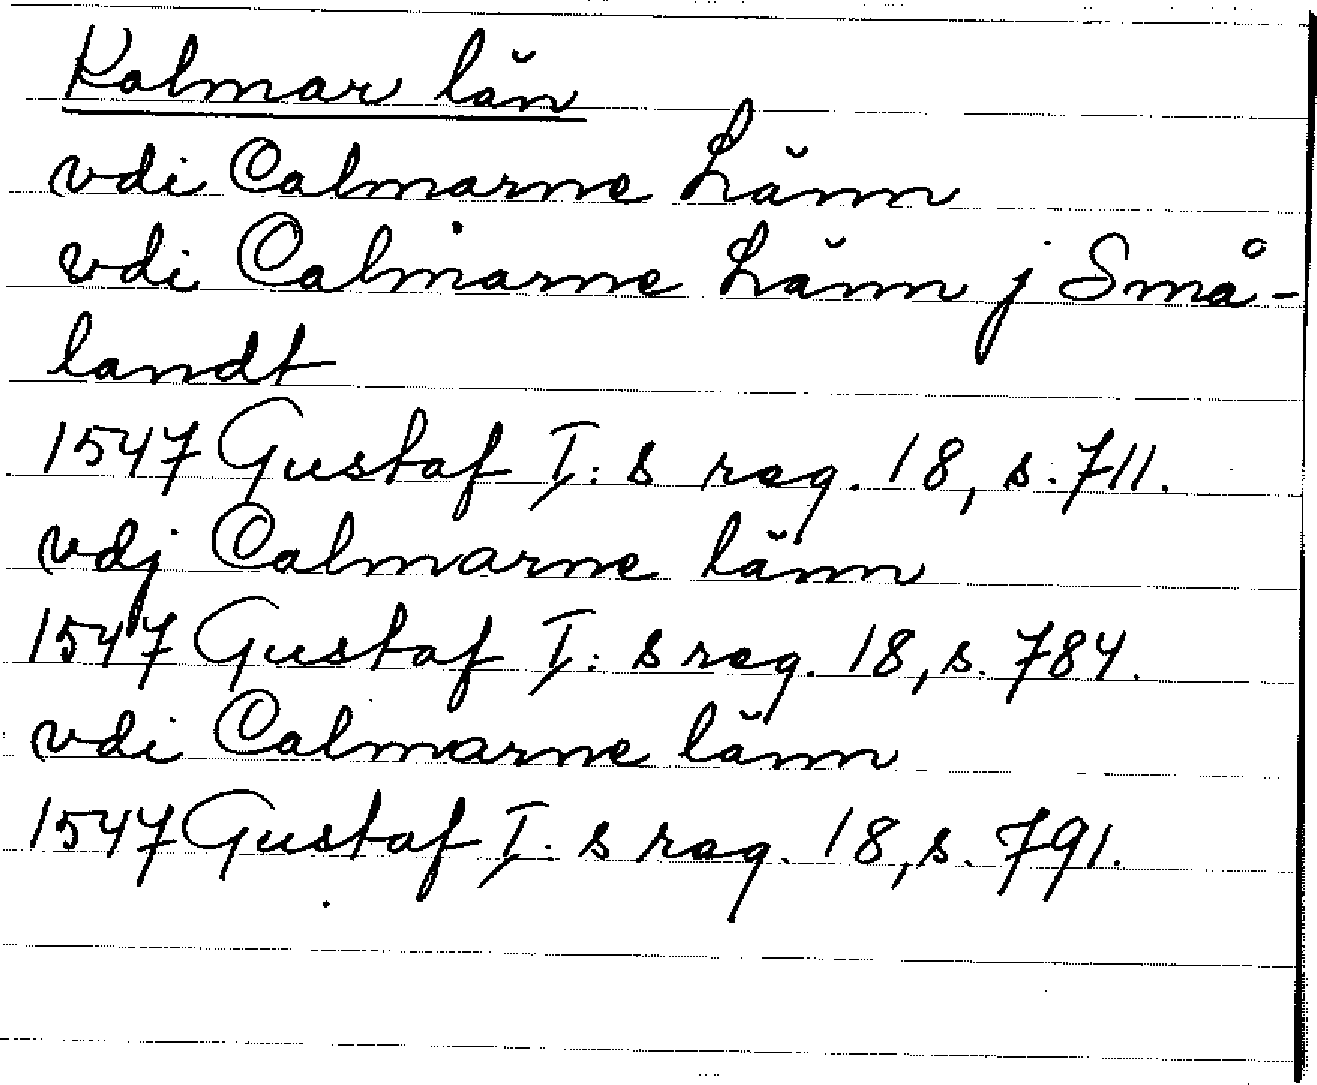 Kalmar län
vdi Calmarne Länn
vdi Calmarne Länn j Små-
landt
1547 Gustaf I: s reg. 18, s. 711.
vdj Calmarne länn
1547 Gustaf I: s reg. 18, s. 784.
vdi Calmarne länn
1547 Gustaf I. s reg. 18, s. 791.